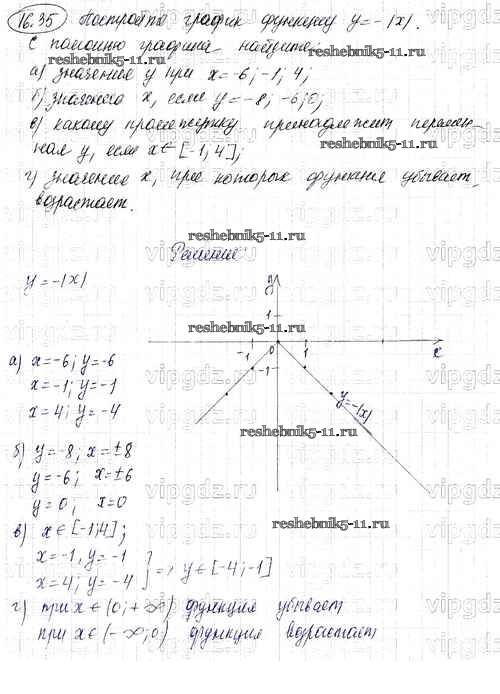 16.35 Построить график функции y=-|x|.
С помощью графика найдите:
reshebnik5-11.ru
а) значение y при x=-6; -1; 4;
б) значение x, если y=-8; -6; 0;
в) какому промежутку принадлежит перемен-
ная y, если x∈[-1; 4];
reshebnik5-11.ru
г) значение x, при которых функция убывает,
возрастает.
reshebnik5-11.ru
Решение:
y=-|x|
y
1
reshebnik5-11.ru
-1 0 1 x
-1
а) x=-6; y=-6
x=-1; y=-1
x=4; y=-4
y=-|x|
reshebnik5-11.ru
б) y=-8; x=±8
y=-6; x=±6
y=0; x=0
reshebnik5-11.ru
в) x∈[-1;4];
x=-1, y=-1
x=4; y=-4 } => y∈[-4;-1]
г) при x∈(0;+∞) функция убывает
при x∈(-∞;0) функция возрастает
vipgdz.ru